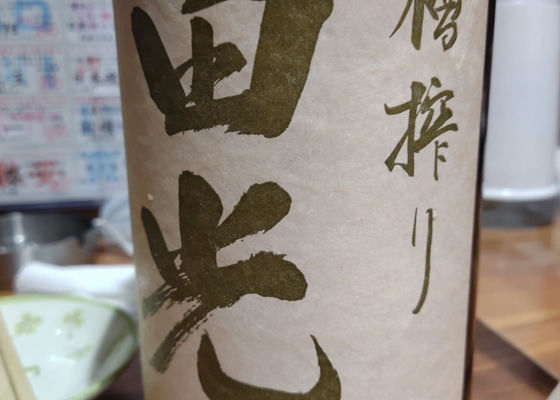 槽搾り
田光